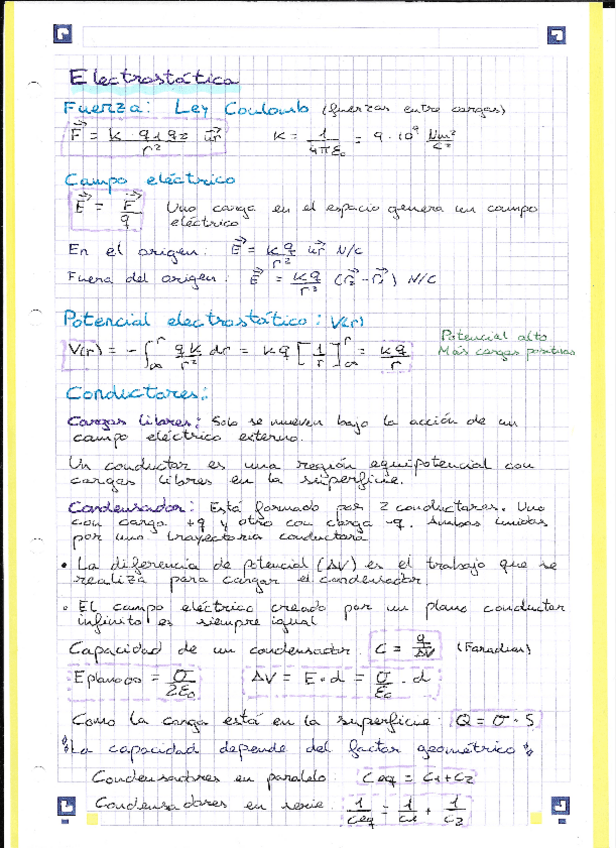 Electrostática
Fuerza: Ley Coulomb (fuerzas entre cargas)
F⃗ = k · q1 q2 / r² u⃗r   K = 1 / 4πε₀ = 9 · 10⁹ Nm² / C²
Campo eléctrico
E⃗ = F⃗ / q   Una carga en el espacio genera un campo
eléctrico
En el origen: E⃗ = K q / r² u⃗r N/C
Fuera del origen: E⃗ = K q / r³ (r⃗ - r⃗) N/C
Potencial electrostático: V(r)
Potencial alto
V(r) = - ∫∞^r q k / r² dr = k q [1 / r]∞^r = k q / r   Más cargas positivas
Conductores:
Cargas libres: Solo se mueven bajo la acción de un
campo eléctrico externo.
Un conductor es una región equipotencial con
cargas libres en la superficie.
Condensador: Está formado por 2 conductores. Uno
con carga +q y otro con carga -q. Ambas unidas
por una trayectoria conductora
• La diferencia de potencial (ΔV) es el trabajo que se
realiza para cargar el condensador.
• El campo eléctrico creado por un plano conductor
infinito es siempre igual
Capacidad de un condensador C = q / ΔV (Faradias)
E plano ∞ = σ / 2ε₀   ΔV = E · d = σ / ε₀ · d
Como la carga está en la superficie: Q = σ · S
La capacidad depende del factor geométrico
Condensadores en paralelo: Ceq = C1 + C2
Condensadores en serie: 1 / Ceq = 1 / C1 + 1 / C2